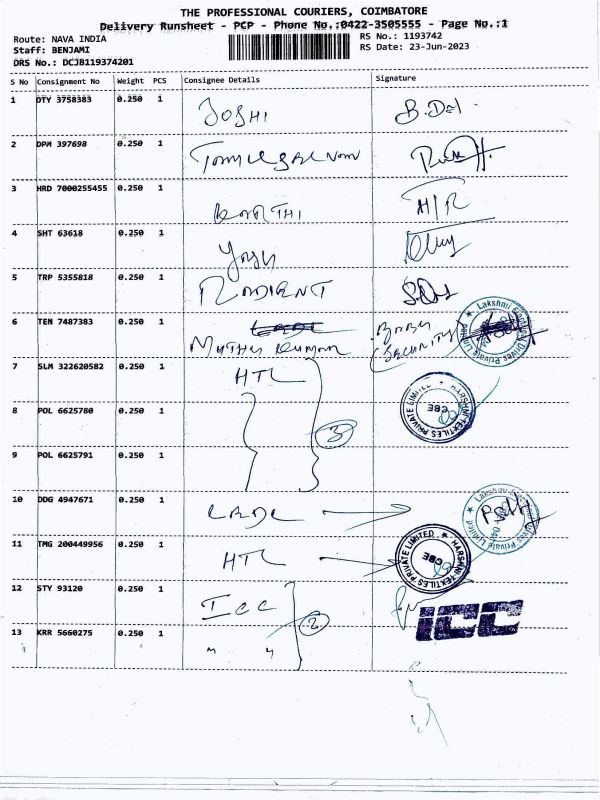 THE PROFESSIONAL COURIERS, COIMBATORE
Delivery Runsheet - PCP - Phone No.:0422-3505555 - Page No.:1
Route: NAVA INDIA
RS No.: 1193742
Staff: BENJAMI
RS Date: 23-Jun-2023
DRS No.: DCJB119374201
S No Consignment No Weight PCS Consignee Details Signature
1 DTY 3758383 0.250 1 JOSHI
2 DPM 397698 0.250 1
3 HRD 7000255455 0.250 1 KARTHI
4 SHT 63618 0.250 1
5 TRP 5355818 0.250 1 RADIENT
6 TEN 7487383 0.250 1 MUTHU KUMAR BABU
(SECURITY)
Lakshmi Electrical Drives Private Limited
7 SLM 322620582 0.250 1 HTL
HARSHNI TEXTILES PRIVATE LIMITED
CBE
8 POL 6625780 0.250 1
3
9 POL 6625791 0.250 1
10 DDG 4947671 0.250 1 LRDL
Private Limited
11 TMG 200449956 0.250 1 HTL
HARSHNI TEXTILES PRIVATE LIMITED
CBE
12 STY 93120 0.250 1 ICC
2
ICC
13 KRR 5660275 0.250 1 " "